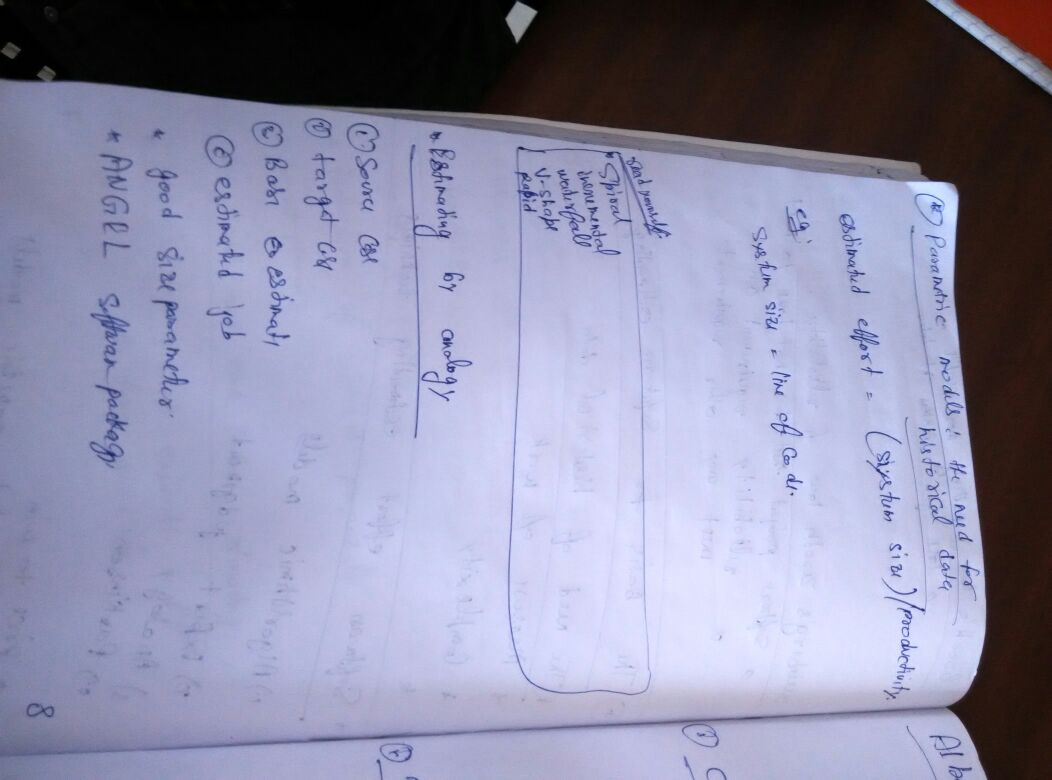 * Parametric models : the need for
historical data
estimated effort = (system size)/productivity.
eg:
system size = line of code.
* Spiral
incremental
waterfall
V-shape
rapid
* Estimating by analogy
① Source case
② target case
② Base es estimati
② estimated job
* good size parameter
* ANGEL software package
8
Alb
③ C
④